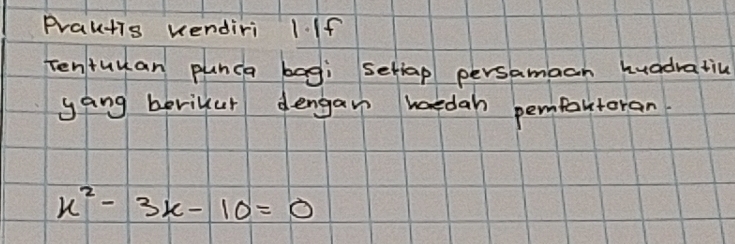 Praktis kendiri 1.1f
Tentukan punca bagi setiap persamaan kuadratik
yang berikut dengan kaedah pemfaktoran.
x² - 3x - 10 = 0